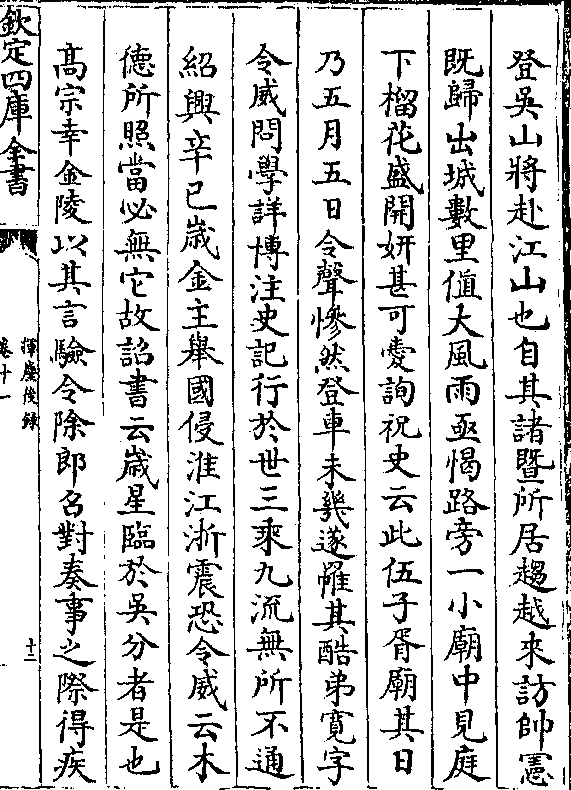 登吳山將赴江山也自其諸暨所居趨越來訪帥憲
既歸出城數里值大風雨亟愒路旁一小廟中見庭
下榴花盛開妍甚可愛詢祝史云此伍子胥廟其日
乃五月五日令聲慘然登車未㡬遂罹其酷弟寛字
令威問學詳博注史記行於世三乘九流無所不通
紹興辛巳歳金主舉國侵淮江浙震恐令威云木
徳所照當必無它故詔書云歳星臨於吳分者是也
髙宗幸金陵以其言驗令除郎召對奏事之際得疾
欽定四庫全書
揮麈後録
卷十一
十二